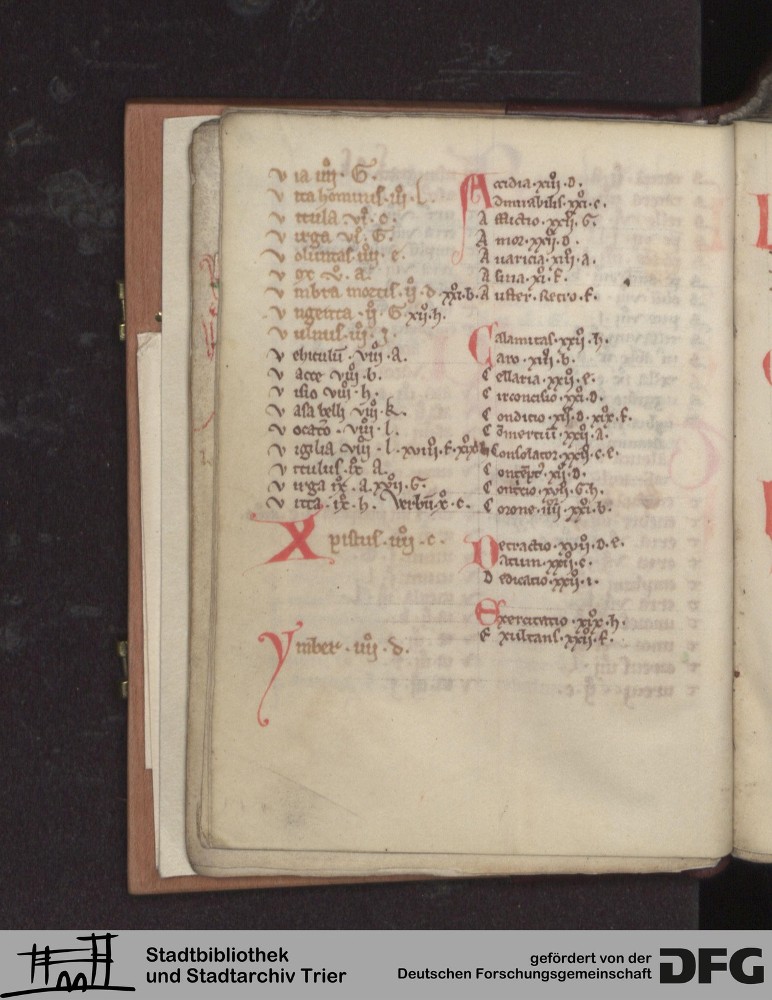 Via iiii. G.
Vita hominis. iii. l.
Vitula vi. c.
Virga vi. G.
Voluntas iiii. e.
Vox v. a.
Vmbra mortis. ii. d. xxi. b.
Vngenta. ii. G. xii. h.
Vulnus. iii. z.
Vehiculū. viii. A.
Vacce viii. b.
Visio viii. h.
Vasa belli viii. k.
Vocatō. viii. l.
Vigilia viii. l. xviii. f.
Vitulus. ix. A.
Virga ix. a. xxii. G.
Vitta. ix. h. Verbū. x. c.
Xpistus. iiii. c.
Ymber. iiii. d.
Accidia. xiii. d.
Admirabilis. xxi. c.
Afflictio. xxii. G.
Amor. xxii. d.
Avaricia. xiii. a.
Asina. xi. f.
Auster. Retro. f.
Calamitas. xxii. h.
Caro. xiii. b.
Cellaria. xxii. e.
Circoncisio. xxi. d.
Conditio. xii. d. xix. f.
Cōmerciū. xxii. a.
Consolator. xxii. c. e.
Contēpt. xii. d.
Contricio. xvii. G. h.
Corone. iiii. xxi. b.
Detractio. xvii. d. e.
Datum. xxii. c.
Dedicatio. xxii. i.
Exercitatio. xix. h.
Exultans. xxii. f.
Stadtbibliothek
und Stadtarchiv Trier
gefördert von der
Deutschen Forschungsgemeinschaft
DFG